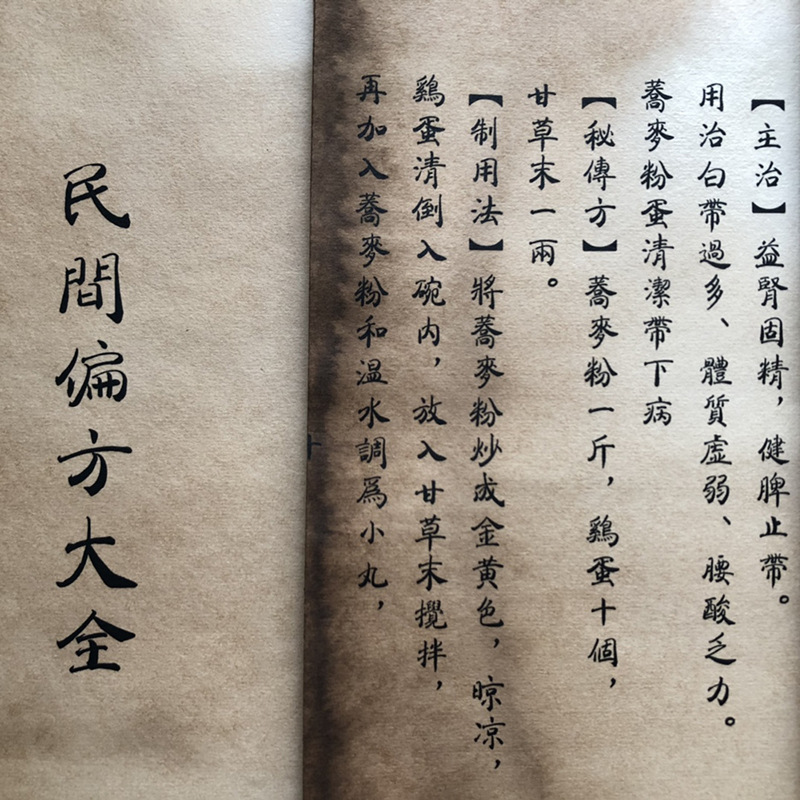 【主治】益腎固精，健脾止帶。
用治白帶過多、體質虛弱、腰酸乏力。
蕎麥粉蛋清潔帶下病
【秘傳方】蕎麥粉一斤，鷄蛋十個，
甘草末一兩。
【制用法】將蕎麥粉炒成金黄色，晾凉，
鷄蛋清倒入碗内，放入甘草末攪拌，
再加入蕎麥粉和温水調爲小丸，
民間偏方大全